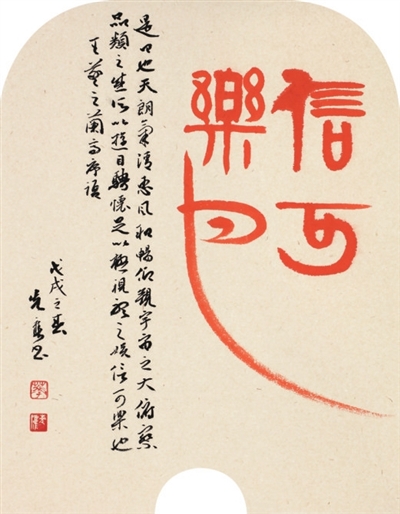 信可
樂也
是日也天朗氣清惠風和暢仰觀宇宙之大俯察
品類之盛所以遊目騁懷足以極視聽之娛信可樂也
王羲之蘭亭序語
戊戌之